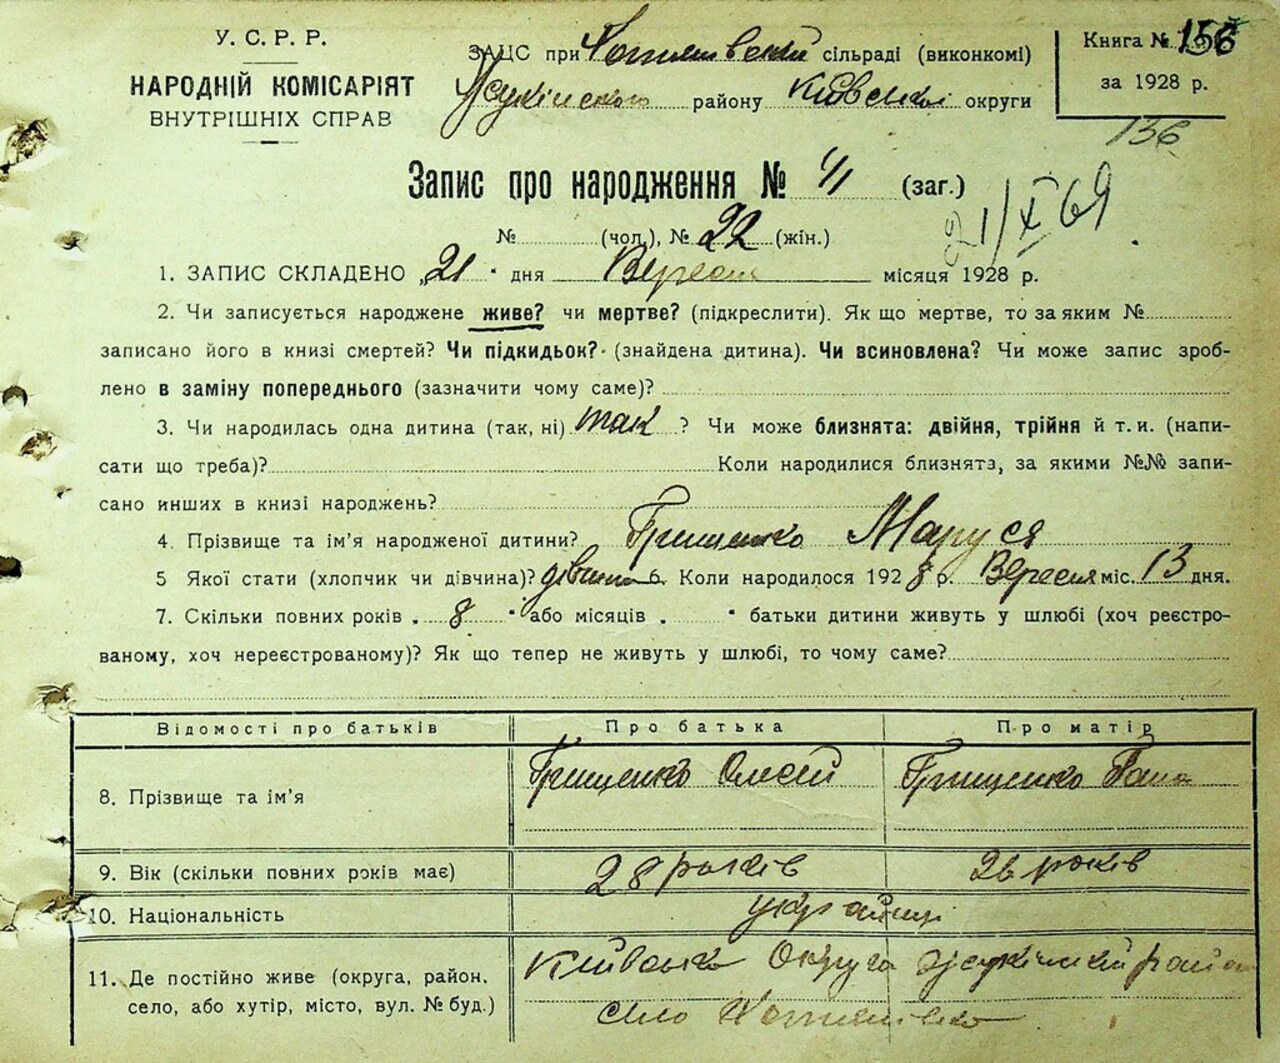 У. С. Р. Р.
НАРОДНІЙ КОМІСАРІЯТ
ВНУТРІШНІХ СПРАВ
ЗАЦС при сільраді (виконкомі)
району Київської округи
Книга № 156
за 1928 р.
136
Запис про народження № 41 (заг.)
21/X 69
№ (чол.), № 22 (жін.)
1. ЗАПИС СКЛАДЕНО „21" дня Вересня місяця 1928 р.
2. Чи записується народжене живе? чи мертве? (підкреслити). Як що мертве, то за яким №
записано його в книзі смертей? Чи підкидьок? (знайдена дитина). Чи всиновлена? Чи може запис зроб-
лено в заміну попереднього (зазначити чому саме)?
3. Чи народилась одна дитина (так, ні) так ? Чи може близнята: двійня, трійня й т. и. (напи-
сати що треба)? Коли народилися близнята, за якими №№ запи-
сано инших в книзі народжень?
4. Прізвище та ім'я народженої дитини? Грищенко Маруся
5 Якої стати (хлопчик чи дівчина)? дівчина 6. Коли народилося 1928 р. Вересня міс. 13 дня.
7. Скільки повних років „ 8 " або місяців „ " батьки дитини живуть у шлюбі (хоч реєстро-
ваному, хоч нереєстрованому)? Як що тепер не живуть у шлюбі, то чому саме?
Відомості про батьків Про батька Про матір
8. Прізвище та ім'я Грищенко Олесій Грищенко Гана
9. Вік (скільки повних років має) 28 років 26 років
10. Національність українці
11. Де постійно живе (округа, район, Київська Округа район
село, або хутір, місто, вул. № буд.) село